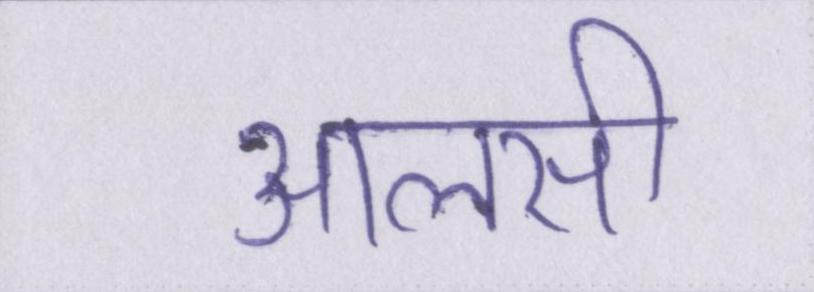 आलसी